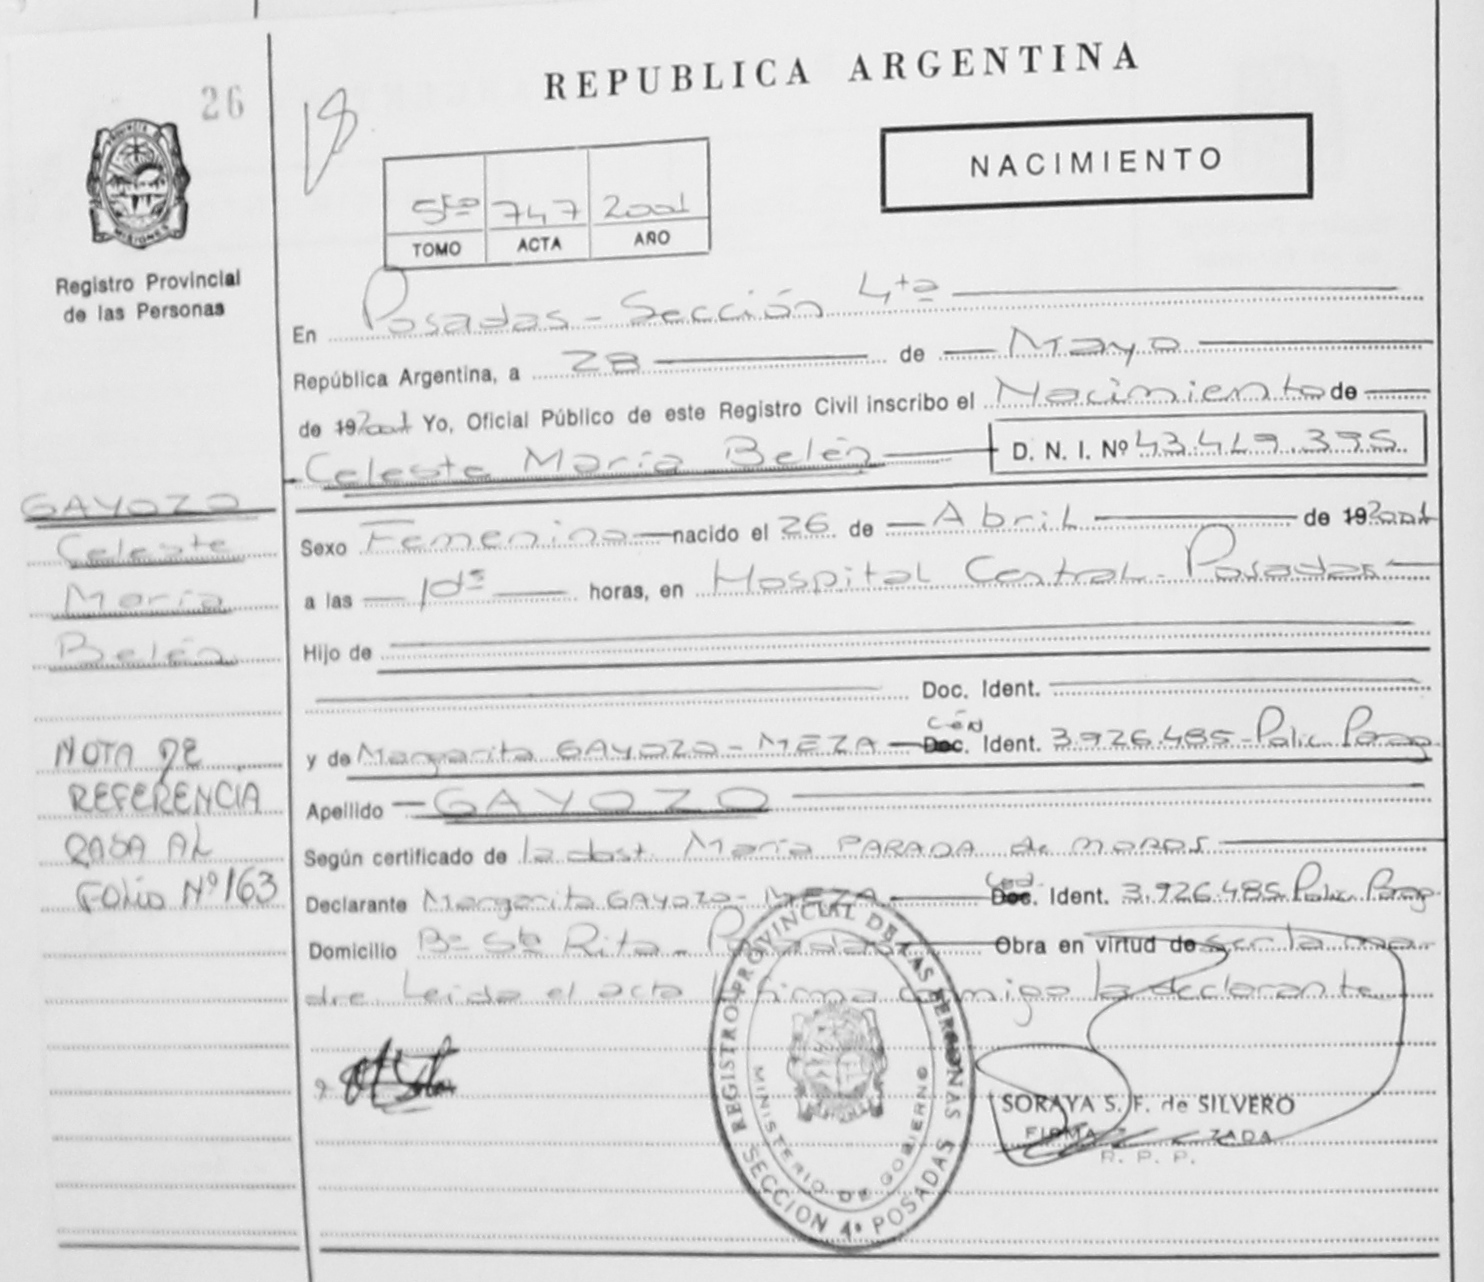 26
REPUBLICA ARGENTINA
NACIMIENTO
5to 747 2001
TOMO ACTA AÑO
PROVINCIA DE MISIONES
Registro Provincial
de las Personas
En Posadas - Sección 4ta
República Argentina, a 28 de Mayo
de 192001 Yo, Oficial Público de este Registro Civil inscribo el Nacimiento de
Celeste María Belén D. N. I. Nº 43.419.395
GAYOZO
Celeste
María
Belén
Sexo Femenino nacido el 26 de Abril de 192001
a las horas, en Hospital Central - Posadas
Hijo de
Doc. Ident.
y de Margarita GAYOZO - MEZA Céd Doc. Ident. 3.926.485 - Polic Parag
Apellido GAYOZO
Según certificado de la obst. María PARADA de
Declarante Margarita GAYOZO - MEZA Ced. Doc. Ident. 3.926.485 Polic. Parag.
Domicilio Bº Sta Rita - Posadas Obra en virtud de ser la ma
dre. Leida el acta firma conmigo la declarante
NOTA DE
REFERENCIA
PASA AL
FOLIO Nº 163
REGISTRO PROVINCIAL DE LAS PERSONAS
MINISTERIO DE GOBIERNO
SECCION 4ª POSADAS
SORAYA S. F. de SILVERO
R. P. P.